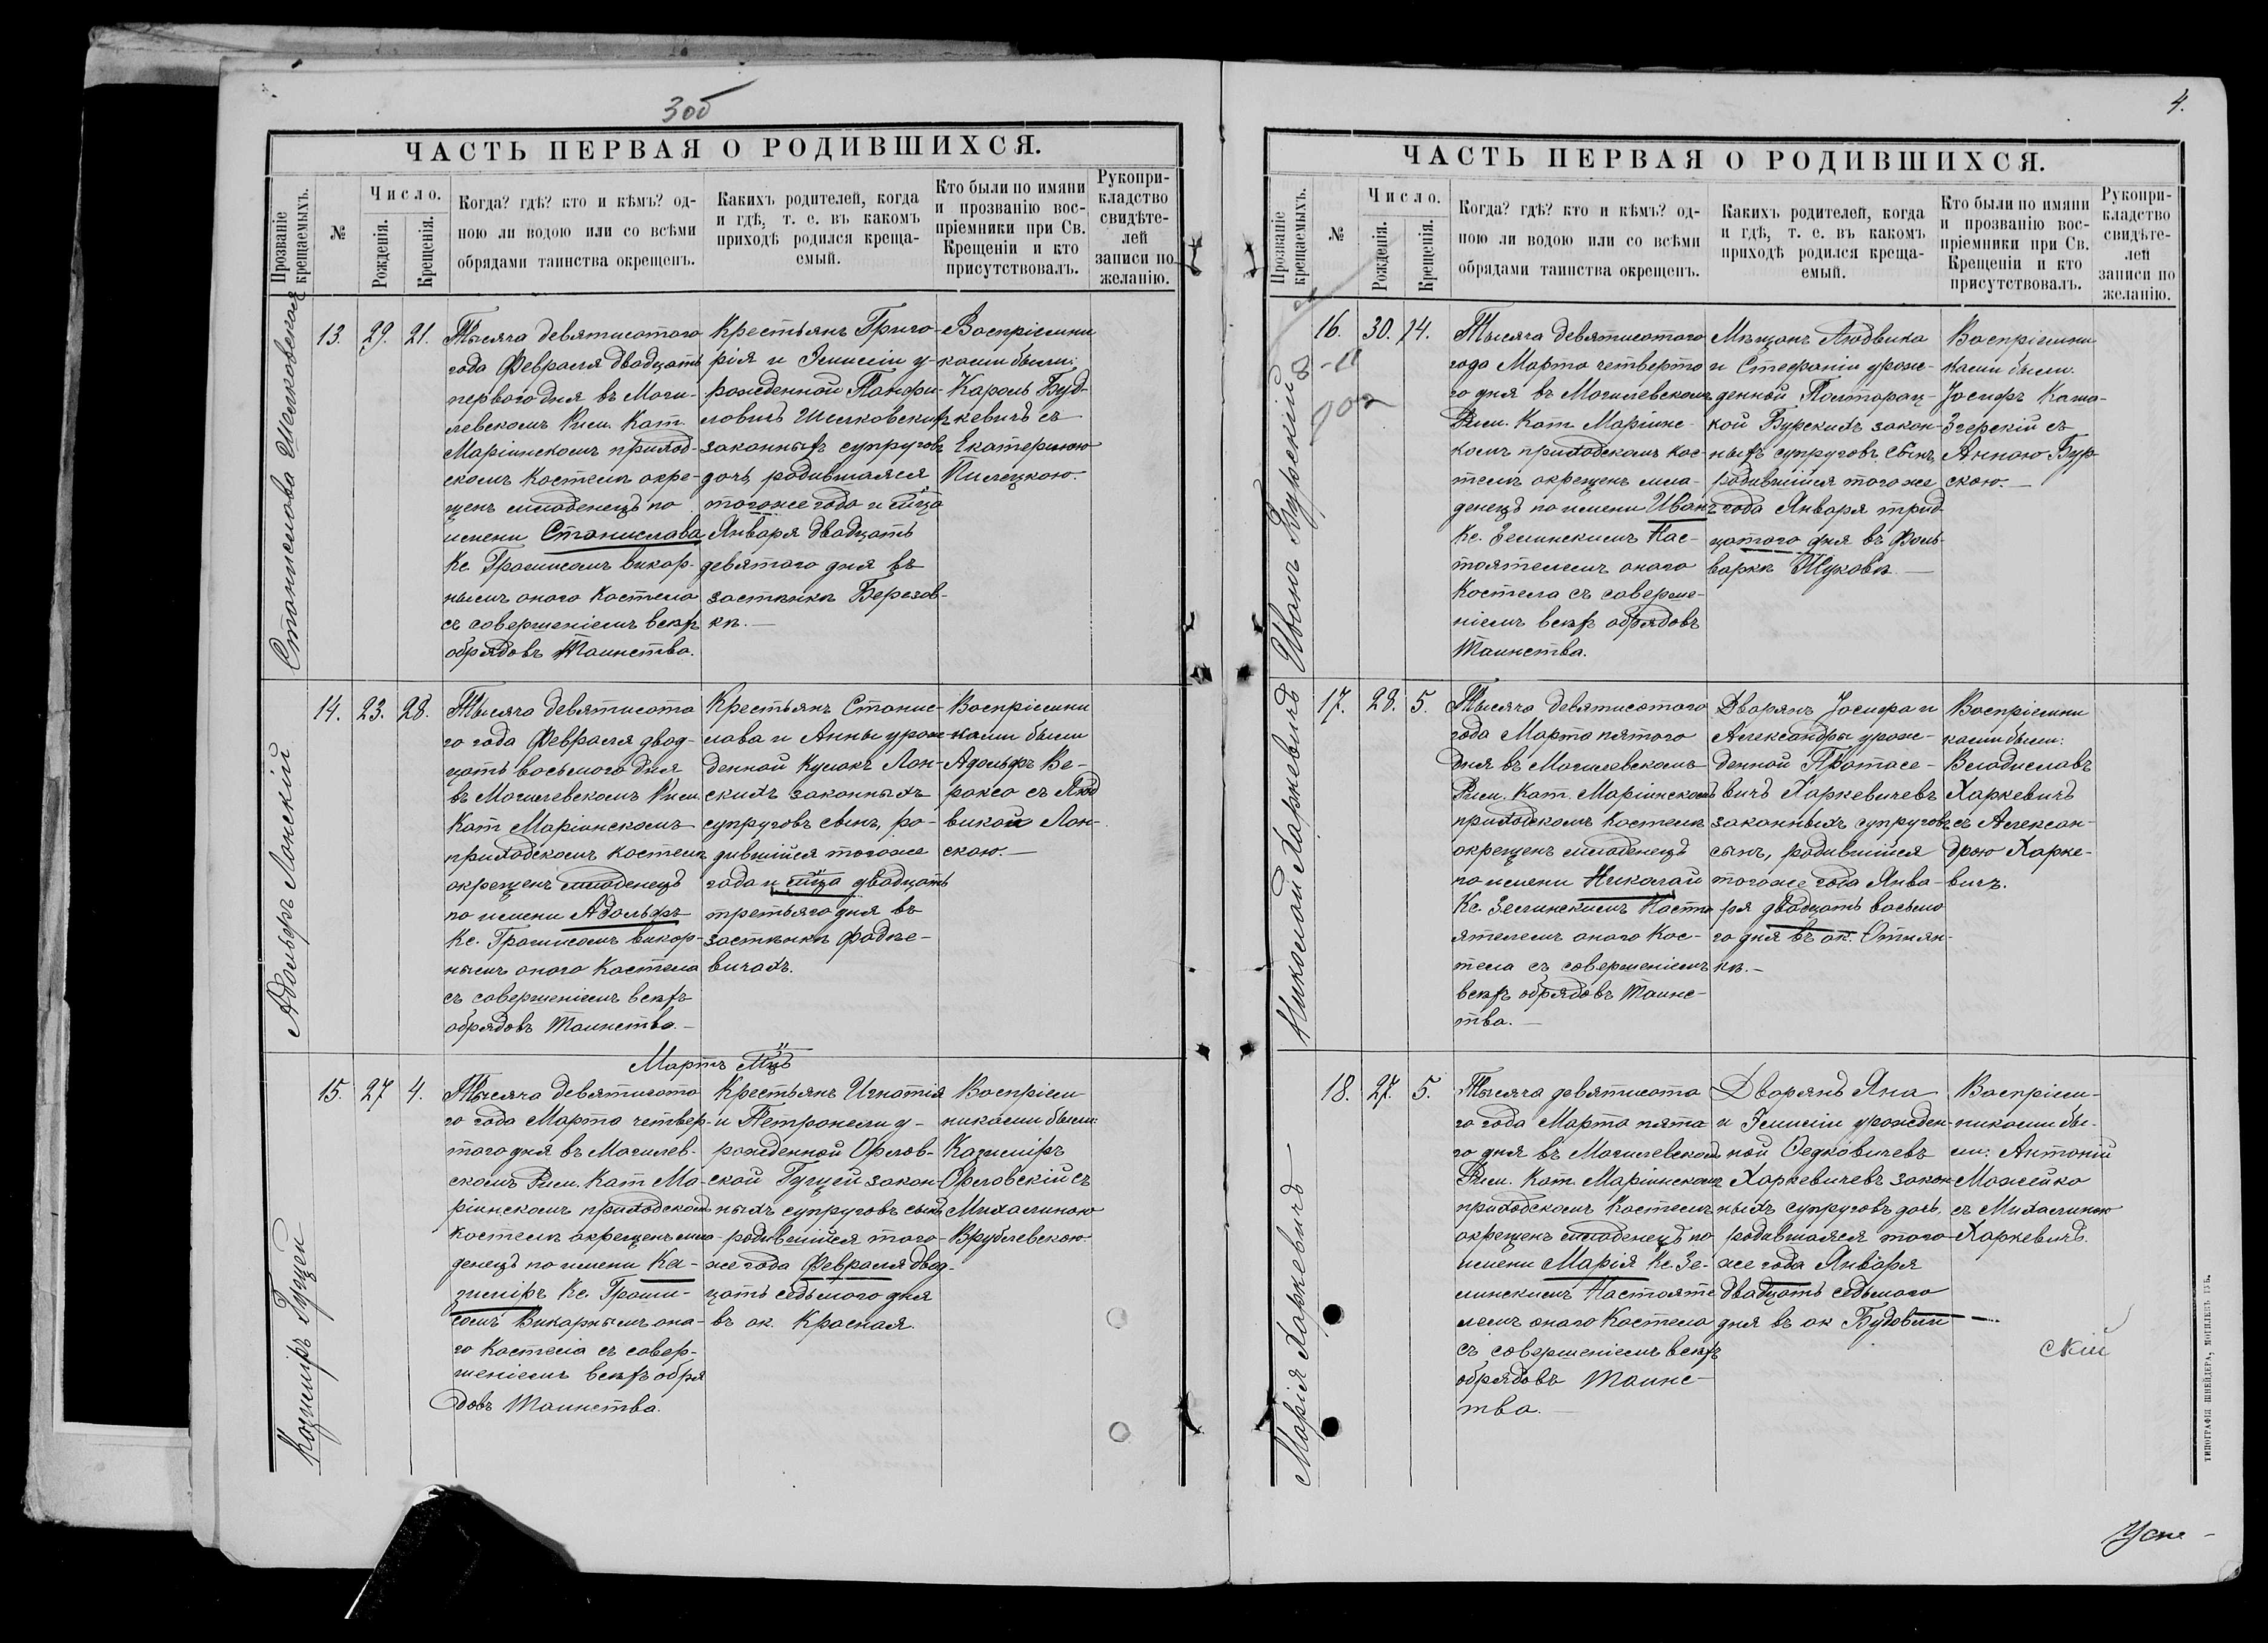 3об
ЧАСТЬ ПЕРВАЯ О РОДИВШИХСЯ.
Прозваніе крещаемыхъ.
№
Число.
Рожденія.
Крещенія.
Когда? гдѣ? кто и кѣмъ? од-
ною ли водою или со всѣми
обрядами таинства окрещенъ.
Какихъ родителей, когда
и гдѣ, т. е. въ какомъ
приходѣ родился креща-
емый.
Кто были по имяни
и прозванію вос-
пріемники при Св.
Крещеніи и кто
присутствовалъ.
Рукопри-
кладство
свидѣте-
лей
записи по
желанію.
Станислава Шелковская
13. 29. 21.
Тысяча девятисотого
года Февраля двадцать
перваго дня въ Моги-
левскомъ Рим. Кат.
Маріинскомъ приход-
скомъ Костелѣ окре-
щенъ младенецъ по
имени Станислава
Кс. Грасисомъ викар-
нымъ онаго Костела
съ совершеніемъ всѣхъ
обрядовъ Таинства.
Крестьянъ Григо-
рія и Эмиліи у-
рожденной Панфи-
ловичъ Шелковскихъ
законныхъ супруговъ
дочь, родившаяся
тогоже года и мѣца
Января двадцать
девятого дня въ
застѣнкѣ Березов-
кѣ.
Воспріемни
ками были:
Кароль Буд-
кевичъ съ
Екатериною
Пилецкою.
Адольфъ Лонскій
14. 23. 28.
Тысяча девятисота
го года Февраля двад-
цать восьмого дня
въ Могилевскомъ Рим.
Кат Маріинскомъ
приходскомъ костелѣ
окрещенъ младенецъ
по имени Адольфъ
Кс. Грасисомъ викар-
нымъ онаго Костела
съ совершеніемъ всѣхъ
обрядовъ Таинства.
Крестьянъ Станис-
лава и Анны урож-
денной Кулакъ Лон-
скихъ законныхъ
супруговъ сынъ, ро-
дившійся тогоже
года и мѣца двадцать
третьяго дня въ
застѣнкѣ Фадѣе-
вичахъ.
Воспріемни
ками были
Адольфъ Ве-
ракса съ Люд
викой Лон-
скою.
Мартъ Мѣцъ
Казиміръ Гуцей
15. 27 4.
Тысяча девятисота
го года Марта четвер-
таго дня въ Могилев-
скомъ Рим. Кат Ма-
ріинскомъ приходскомъ
костелѣ окрещенъ мла-
денецъ по имени Ка-
зиміръ Кс. Граси-
сомъ Викарнымъ она-
го Костела съ совер-
шеніемъ всѣхъ обря
довъ Таинства.
Крестьянъ Игнатія
и Петронели у-
рожденной Орлов-
ской Гуцей закон-
ныхъ супруговъ сынъ
родившійся того-
же года Февраля двад-
цать седьмого дня
въ ок. Красная.
Воспріем
никами были:
Казиміръ
Орловскій съ
Михалиною
Врублевскою.
4.
ЧАСТЬ ПЕРВАЯ О РОДИВШИХСЯ.
Прозваніе крещаемыхъ.
№
Число.
Рожденія.
Крещенія.
Когда? гдѣ? кто и кѣмъ? од-
ною ли водою или со всѣми
обрядами таинства окрещенъ.
Какихъ родителей, когда
и гдѣ, т. е. въ какомъ
приходѣ родился креща-
емый.
Кто были по имяни
и прозванію вос-
пріемники при Св.
Крещеніи и кто
присутствовалъ.
Рукопри-
кладство
свидѣте-
лей
записи по
желанію.
Иванъ Бурскій
16. 30. 14.
Тысяча девятисотого
года Марта четверто
го дня въ Могилевскомъ
Рим. Кат Маріинс-
комъ приходскомъ кос-
телѣ окрещенъ мла-
денецъ по имени Иванъ
Кс. Зелинскимъ Нас-
тоятелемъ онаго
Костела съ соверше-
ніемъ всѣхъ обрядовъ
Таинства.
Мѣщанъ Людвика
и Стефаніи урож-
денной Полторац-
кой Бурскихъ закон-
ныхъ супруговъ сынъ
родившійся тогоже
года Января трид-
цатого дня въ фоль-
варкѣ Жуковѣ
Воспріемни
ками были.
Іосифъ Каша-
Згерскій съ
Анною Бур-
скою.
Николай Харкевичъ
17. 28. 5.
Тысяча девятисотого
года Марта пятого
дня въ Могилевскомъ
Рим. Кат. Маріинскомъ
приходскомъ Костелѣ
окрещенъ младенецъ
по имени Николай
Кс. Зелинскимъ Насто
ятелемъ онаго Кос-
тела съ совершеніемъ
всѣхъ обрядовъ Таинс-
тва.
Дворянъ Іосифа и
Александры урож-
денной Протасе-
вичъ Харкевичевъ
законныхъ супруговъ
сынъ, родившійся
тогоже года Янва-
ря двадцать восьмо
го дня въ ок. Отнян-
кѣ.
Воспріемни
ками были:
Владиславъ
Харкевичъ
съ Алексан-
дрою Харке-
вичъ.
Марія Харкевичъ
18. 27. 5.
Тысяча девятисота
го года Марта пята
го дня въ Могилевскомъ
Рим. Кат. Маріинскомъ
приходскомъ Костелѣ
окрещенъ младенецъ по
имени Марія Кс. Зе-
линскимъ Настояте
лемъ онаго Костела
съ совершеніемъ всѣхъ
обрядовъ Таинс-
тва.
Дворянъ Яна
и Эмиліи урожден-
ной Федковичевъ
Харкевичевъ закон
ныхъ супруговъ дочь,
родившаяся того-
же года Января
двадцать седьмого
дня въ ок Будовли
Воспріем-
никами бы-
ли: Антоній
Можейко
съ Михалиною
Харкевичъ.
скій
ТИПОГРАФІЯ ШНЕЙДЕРА, МОГИЛЕВЪ ГУБ.